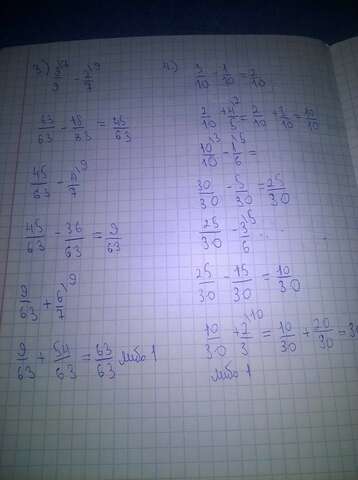 3) 9/9\7 - 2/7\9
63/63 - 18/63 = 45/63
45/63 - 4/7\9
45/63 - 36/63 = 9/63
9/63 + 6/7\9
9/63 + 54/63 = 63/63 либо 1
4) 3/10 - 1/10 = 2/10
2/10 + 4/5\2 = 2/10 + 8/10 = 10/10
10/10\3 - 1/6\5 =
30/30 - 5/30 = 25/30
25/30 - 3/6\5
25/30 - 15/30 = 10/30
10/30 + 2/3\10 = 10/30 + 20/30 =
либо 1